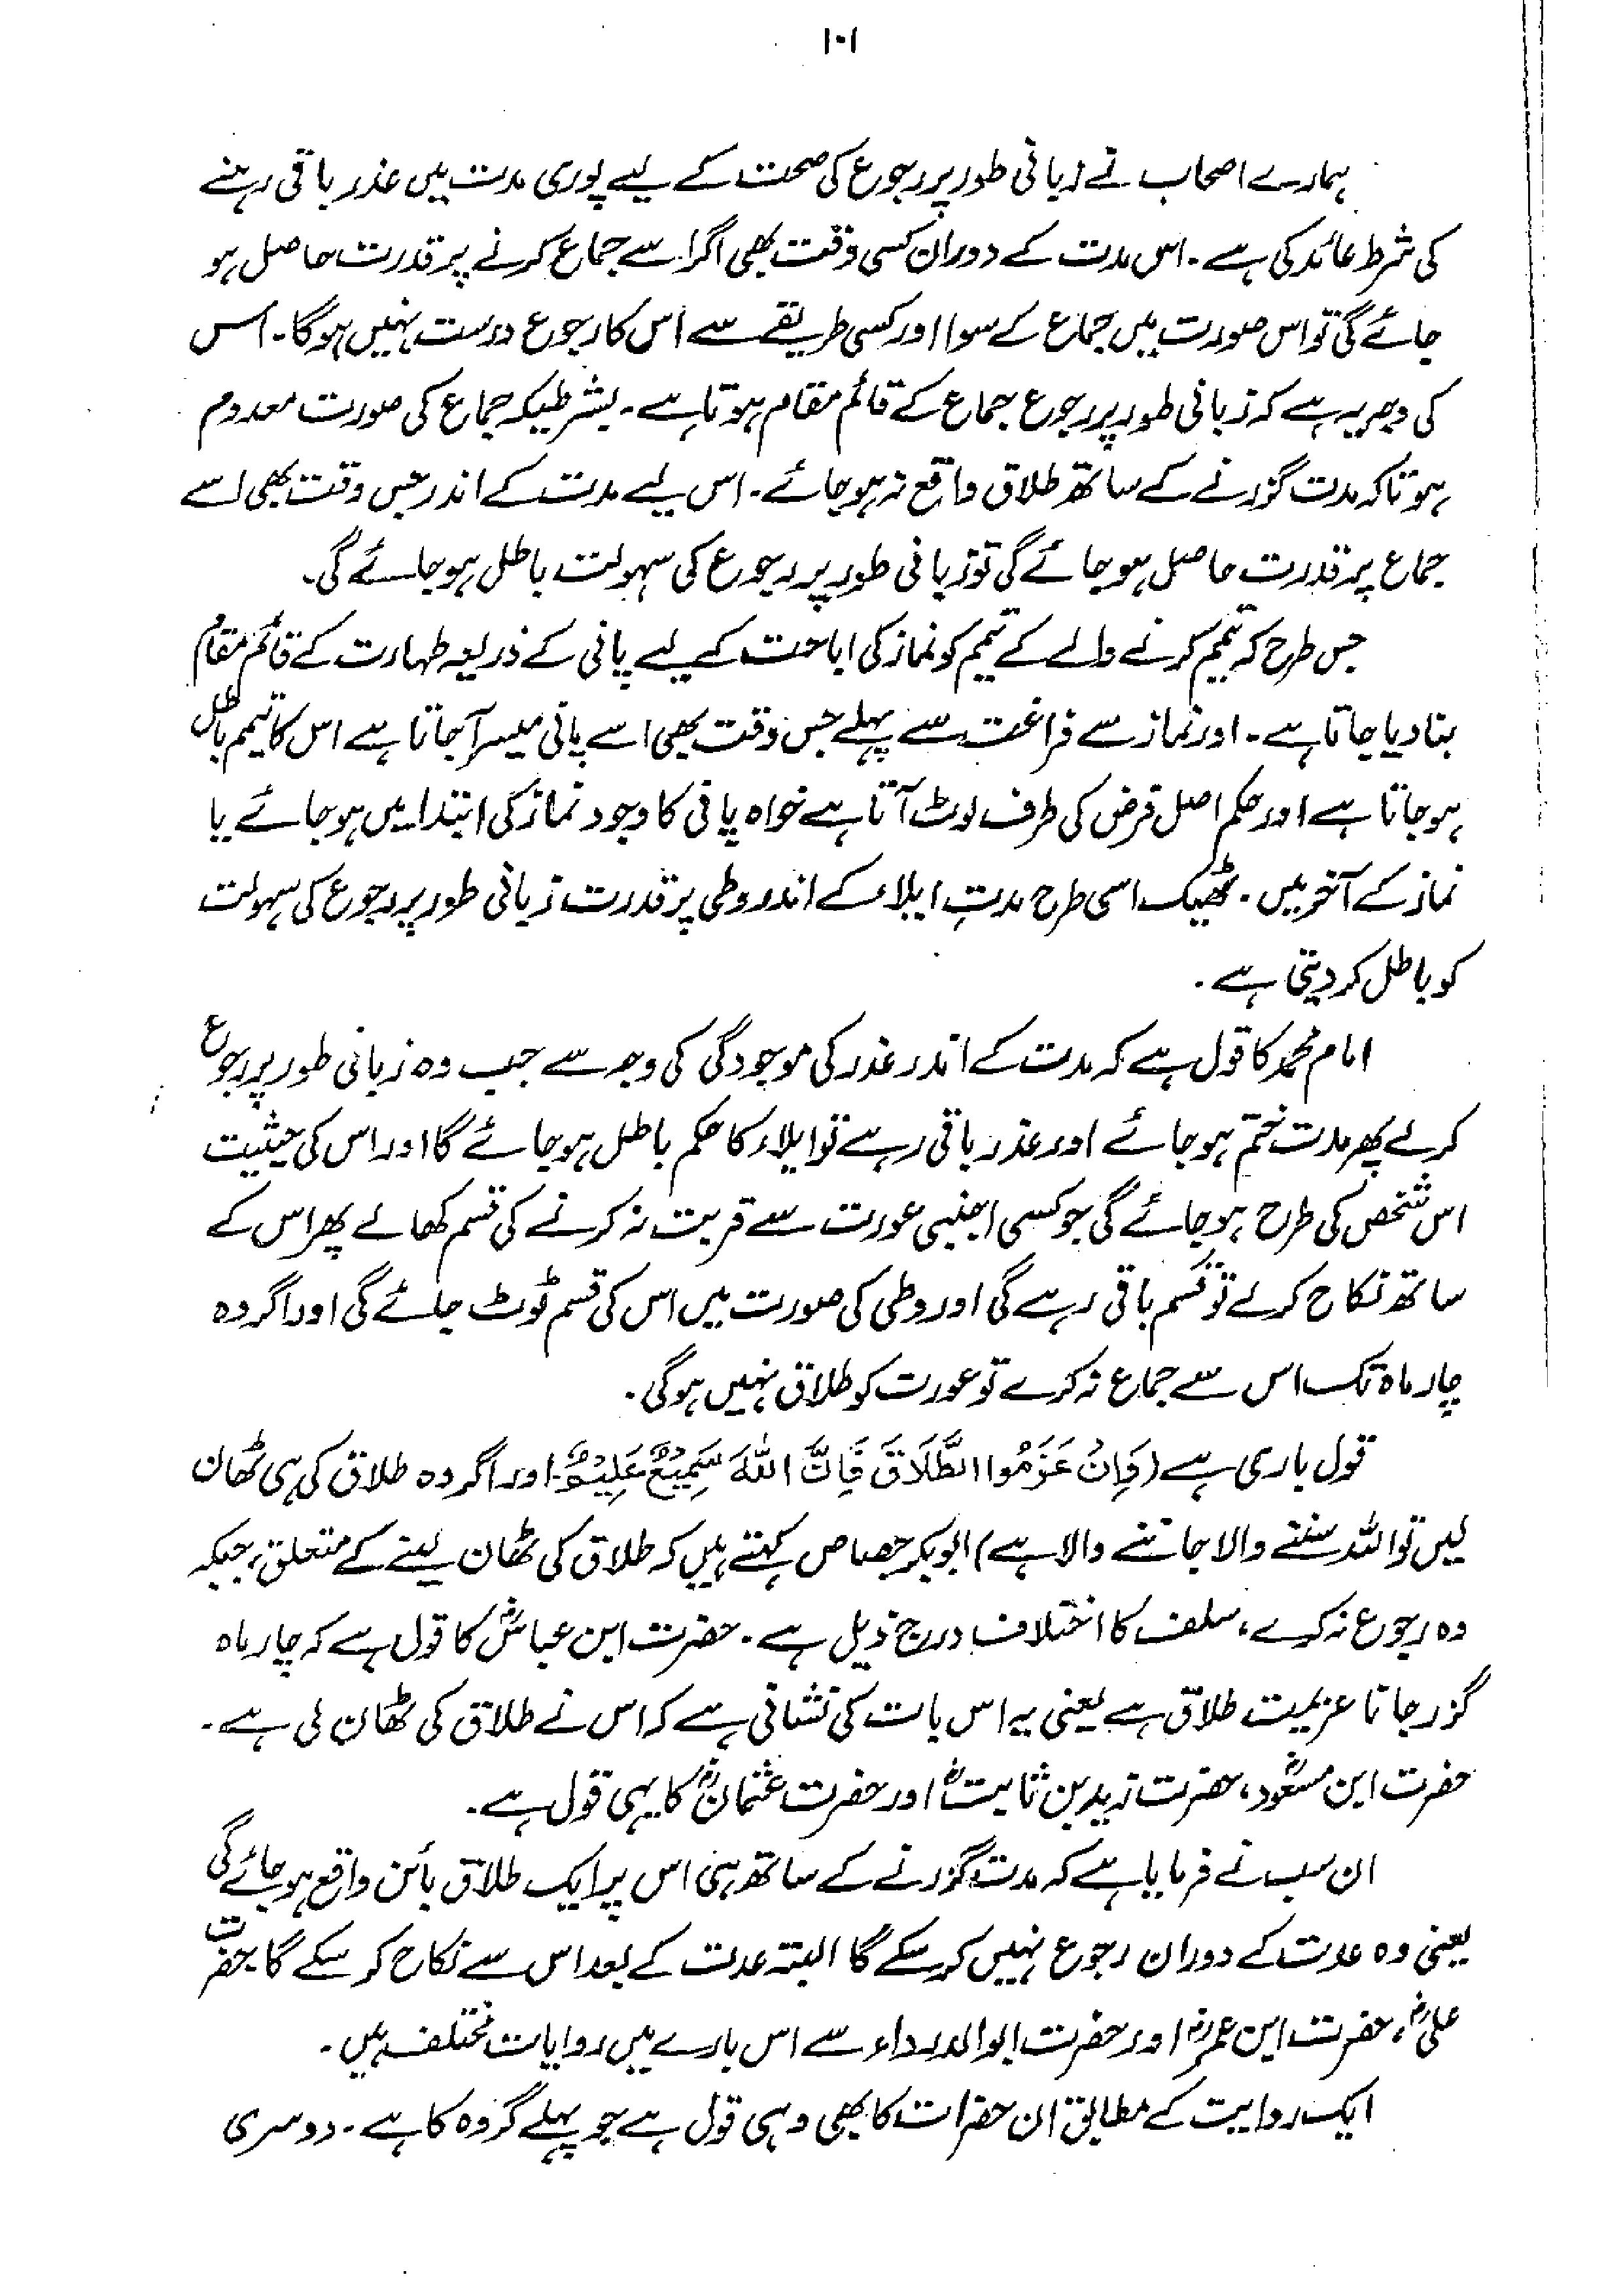 ۱۰۱
ہمارے اصحاب نے زبانی طور پر رجوع کی صحت کے لیے پوری مدت میں عذر باقی رہنے
کی شرط عائد کی ہے۔ اس مدت کے دوران کسی وقت بھی اگر اسے جماع کرنے پر قدرت حاصل ہو
جائے گی تو اس صورت میں جماع کے سوا اور کسی طریقے سے اس کا رجوع درست نہیں ہوگا۔ اس
کی وجہ یہ ہے کہ زبانی طور پر رجوع جماع کے قائم مقام ہوتا ہے۔ بشرطیکہ جماع کی صورت معدوم
ہو تاکہ مدت گزرنے کے ساتھ طلاق واقع نہ ہو جائے۔ اس لیے مدت کے اندر جس وقت بھی اسے
جماع پر قدرت حاصل ہو جائے گی تو زبانی طور پر رجوع کی سہولت باطل ہو جائے گی۔
جس طرح کہ تیمم کرنے والے کے تیمم کو نماز کی اباحت کے لیے پانی کے ذریعہ طہارت کے قائم مقام
بنا دیا جاتا ہے۔ اور نماز سے فراغت سے پہلے جس وقت بھی اسے پانی میسر آ جاتا ہے اس کا تیمم باطل
ہو جاتا ہے اور حکم اصل فرض کی طرف لوٹ آتا ہے خواہ پانی کا وجود نماز کی ابتدا میں ہو جائے یا
نماز کے آخر میں۔ ٹھیک اسی طرح مدتِ ایلاء کے اندر وطی پر قدرت زبانی طور پر رجوع کی سہولت
کو باطل کر دیتی ہے۔
امام محمد کا قول ہے کہ مدت کے اندر عذر کی موجودگی کی وجہ سے جب وہ زبانی طور پر رجوع
کرلے پھر مدت ختم ہو جائے اور عذر باقی رہے تو ایلاء کا حکم باطل ہو جائے گا اور اس کی حیثیت
اس شخص کی طرح ہو جائے گی جو کسی اجنبی عورت سے قربت نہ کرنے کی قسم کھالے پھر اس کے
ساتھ نکاح کرلے تو قسم باقی رہے گی اور وطی کی صورت میں اس کی قسم ٹوٹ جائے گی اور اگر وہ
چار ماہ تک اس سے جماع نہ کرے تو عورت کو طلاق نہیں ہوگی۔
قول باری ہے (وَإِنْ عَزَمُوا الطَّلَاقَ فَإِنَّ اللّٰهَ سَمِيْعٌ عَلِيْمٌ۔ اور اگر وہ طلاق کی ہی ٹھان
لیں تو اللہ سننے والا جاننے والا ہے) ابوبکر جصاص کہتے ہیں کہ طلاق کی ٹھان لینے کے متعلق، جبکہ
وہ رجوع نہ کرے، سلف کا اختلاف درج ذیل ہے۔ حضرت ابن عباسؓ کا قول ہے کہ چار ماہ
گزر جانا عزیمت طلاق ہے یعنی یہ اس بات کی نشانی ہے کہ اس نے طلاق کی ٹھان لی ہے۔
حضرت ابن مسعودؓ، حضرت زید بن ثابتؓ اور حضرت عثمانؓ کا یہی قول ہے۔
ان سب نے فرمایا ہے کہ مدت گزرنے کے ساتھ ہی اس پر ایک طلاق بائن واقع ہو جائے گی
یعنی وہ عدت کے دوران رجوع نہیں کر سکے گا البتہ عدت کے بعد اس سے نکاح کر سکے گا۔ حضرت
علیؓ، حضرت ابن عمرؓ اور حضرت ابوالدرداء سے اس بارے میں روایات مختلف ہیں۔
ایک روایت کے مطابق ان حضرات کا بھی وہی قول ہے جو پہلے گروہ کا ہے۔ دوسری